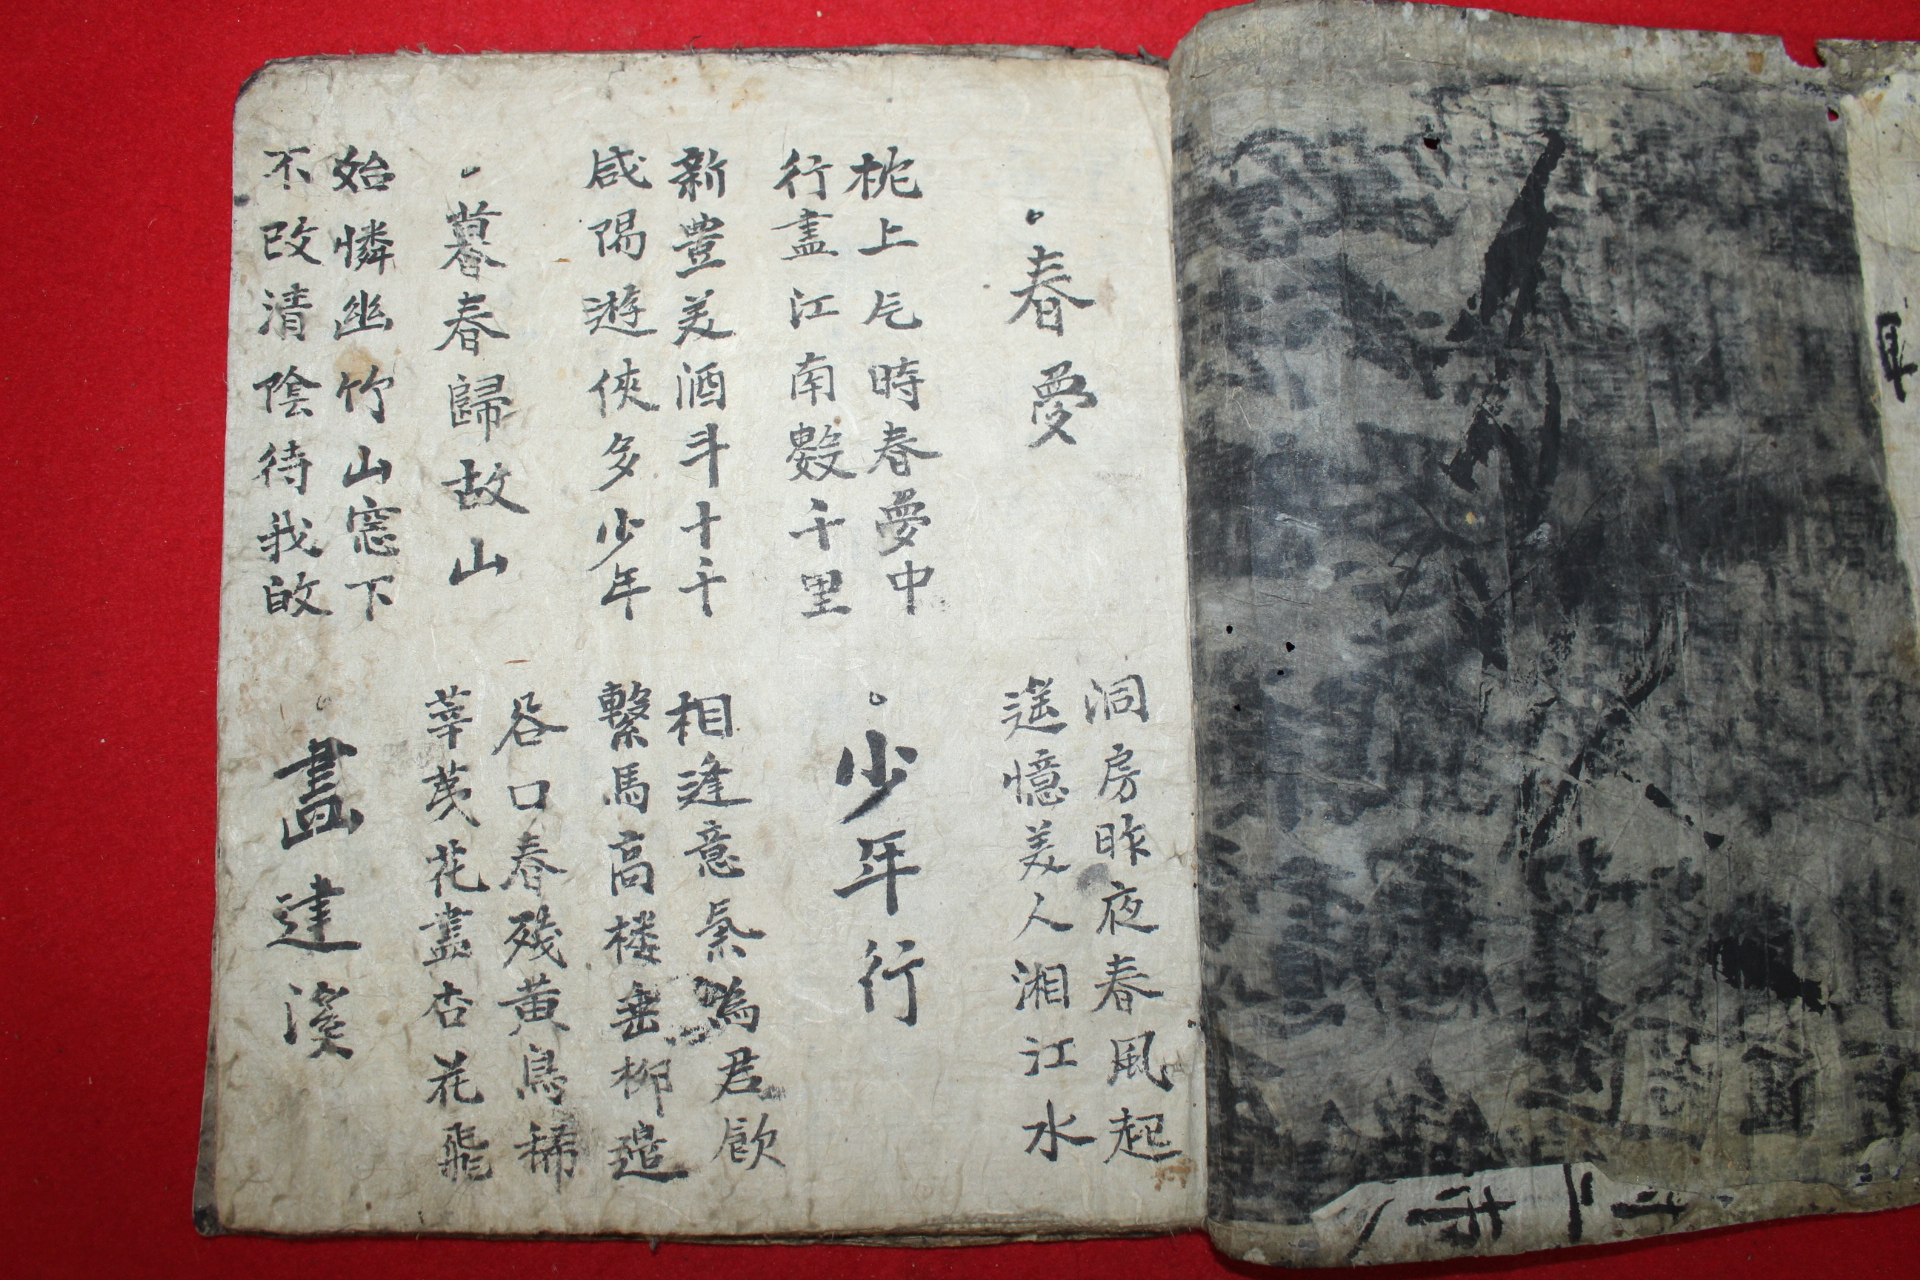 春夢
洞房昨夜春風起
遥憶美人湘江水
枕上片時春夢中
行盡江南數千里
少年行
新豊美酒斗十千
咸陽遊俠多少年
相逢意氣為君飮
繫馬高楼垂柳邉
暮春歸故山
谷口春殘黄鳥稀
莘荑花盡杏花飛
始憐幽竹山窓下
不改清陰待我皈
畫建溪